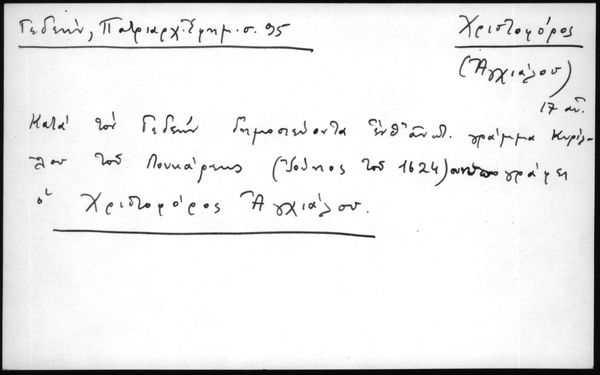 Γεδεών, Πατριαρχ. Ἐφημ. σ. 95
Χριστοφόρος
(Ἀγχιάλου)
17 αἰ.
Κατά τόν Γεδεών δημοσιεύοντα ἐνθ' ἀνωτ. γράμμα Κυρίλ-
λου τοῦ Λουκάρεως (Ἰούνιος τοῦ 1624) συνυπογράφει
ὁ Χριστοφόρος Ἀγχιάλου.